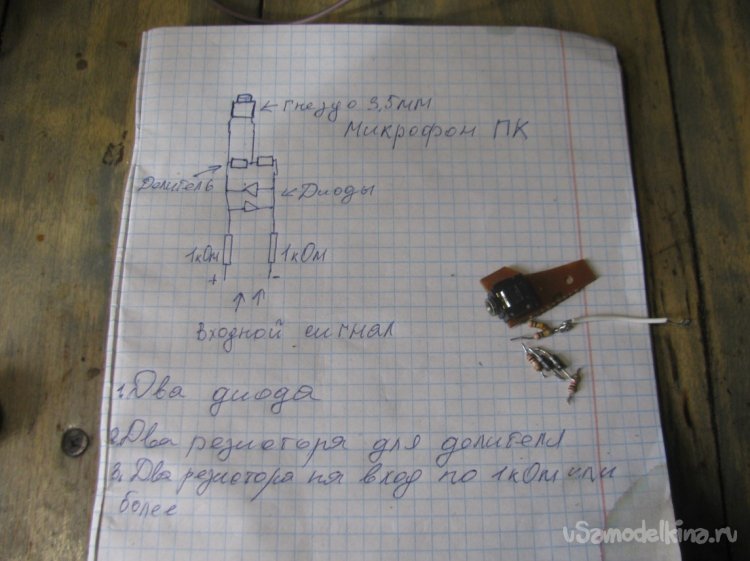 ← гнездо 3,5мм
Микрофон ПК
Делитель
← Диоды
1кОм
1кОм
+
-
Входной сигнал
1. Два диода
2. Два резистора для делителя
3. Два резистора на вход по 1кОм или
более
vSamodelkina.ru